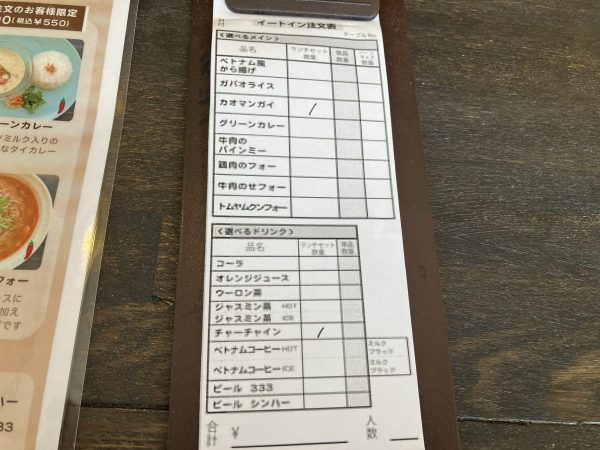 注文のお客様限定
00(税込¥550)
ーンカレー
ミルク入りの
なタイカレー
フォー
スに
加え
です
ハー
33
イートイン注文表
テーブルNo.
<選べるメイン>
品名 ランチセット数量 単品数量 ハーフサイズ数量
ベトナム風
から揚げ
ガパオライス
カオマンガイ /
グリーンカレー
牛肉の
バインミー
鶏肉のフォー
牛肉のせフォー
トムヤムクンフォー
<選べるドリンク>
品名 ランチセット数量 単品数量
コーラ
オレンジジュース
ウーロン茶
ジャスミン茶 HOT
ジャスミン茶 ICE
チャーチャイン /
ベトナムコーヒー HOT ミルク ブラック
ベトナムコーヒー ICE ミルク ブラック
ビール 333
ビール シンハー
合計 ¥ 人数